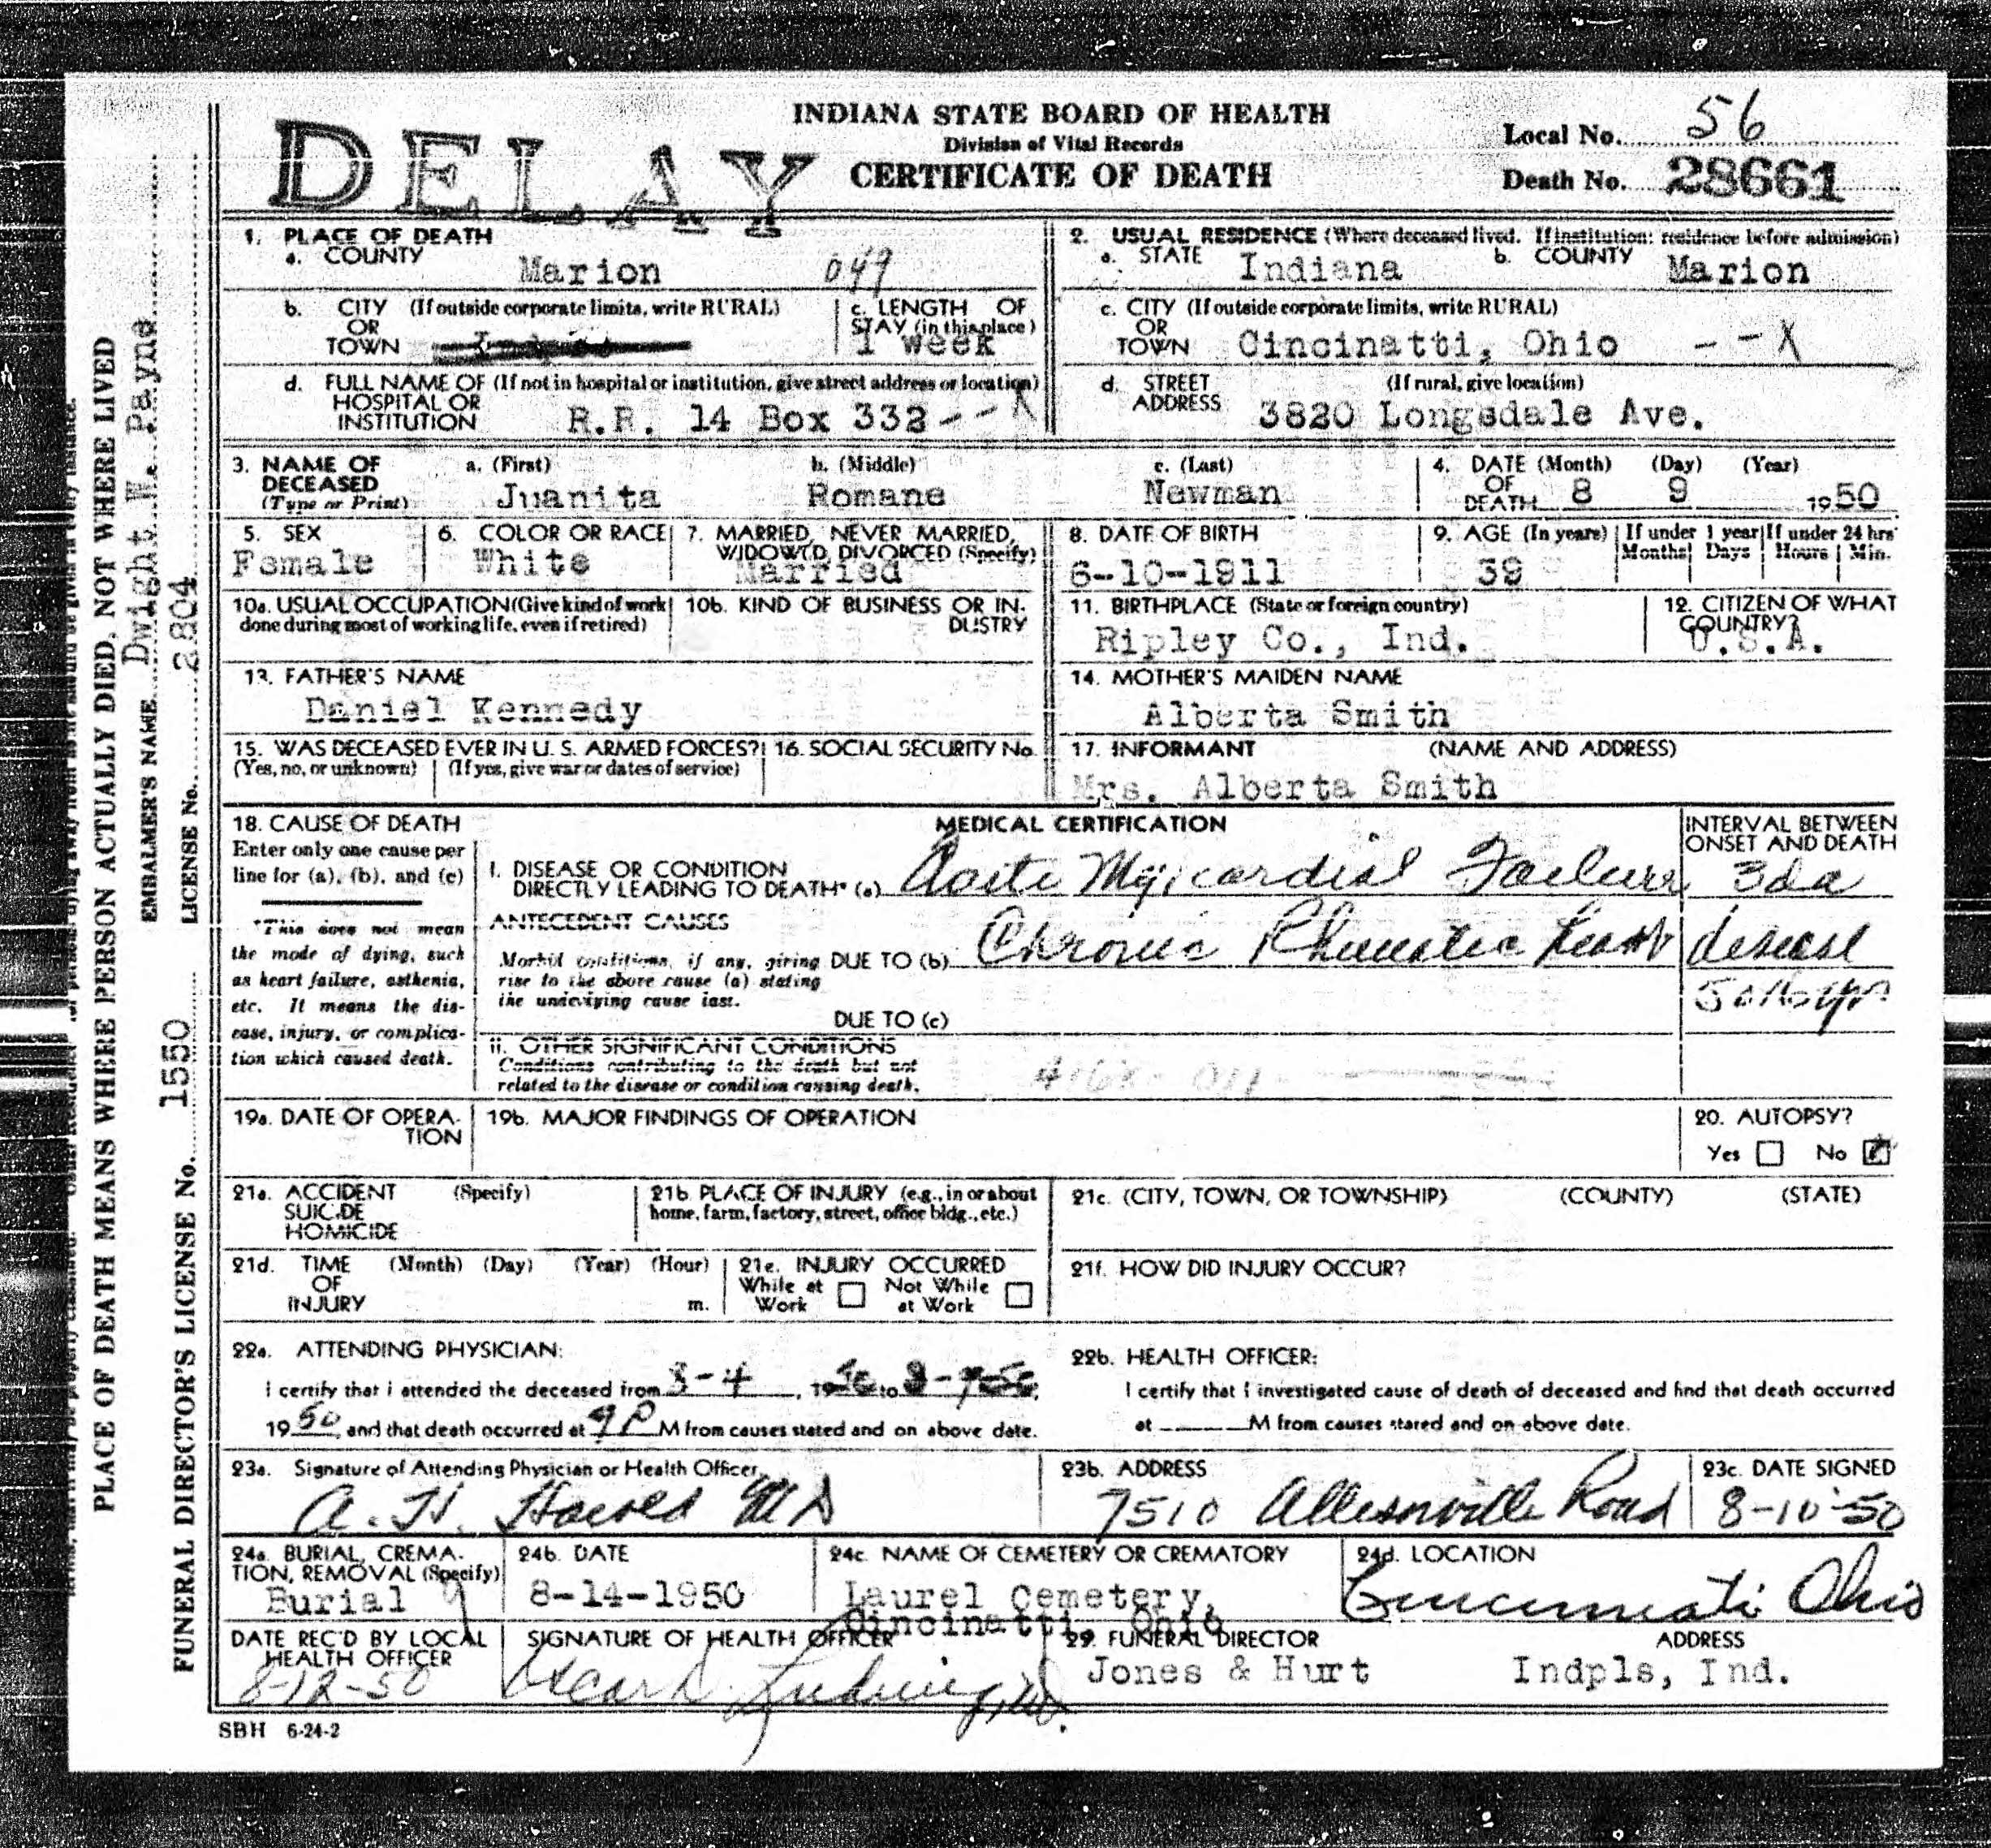 INDIANA STATE BOARD OF HEALTH
Division of Vital Records
CERTIFICATE OF DEATH
DELAY
Local No. 56
Death No. 28661
1. PLACE OF DEATH
a. COUNTY Marion 049
b. CITY (If outside corporate limits, write RURAL)
OR
TOWN
c. LENGTH OF
STAY (in this place)
1 week
d. FULL NAME OF (If not in hospital or institution, give street address or location)
HOSPITAL OR
INSTITUTION R.R. 14 Box 332 --X
2. USUAL RESIDENCE (Where deceased lived. If institution: residence before admission)
a. STATE Indiana b. COUNTY Marion
c. CITY (If outside corporate limits, write RURAL)
OR
TOWN Cincinatti, Ohio --X
d. STREET (If rural, give location)
ADDRESS 3820 Longsdale Ave.
3. NAME OF DECEASED (Type or Print)
a. (First) b. (Middle) c. (Last)
Juanita Romane Newman
4. DATE (Month) (Day) (Year)
OF
DEATH 8 9 1950
5. SEX
Female
6. COLOR OR RACE
White
7. MARRIED, NEVER MARRIED,
WIDOWED, DIVORCED (Specify)
Married
8. DATE OF BIRTH
6-10-1911
9. AGE (In years)
39
If under 1 year
Months Days
If under 24 hrs
Hours Min.
10a. USUAL OCCUPATION (Give kind of work
done during most of working life, even if retired)
10b. KIND OF BUSINESS OR IN-
DUSTRY
11. BIRTHPLACE (State or foreign country)
Ripley Co., Ind.
12. CITIZEN OF WHAT
COUNTRY?
U.S.A.
13. FATHER'S NAME
Daniel Kennedy
14. MOTHER'S MAIDEN NAME
Alberta Smith
15. WAS DECEASED EVER IN U. S. ARMED FORCES?
(Yes, no, or unknown) (If yes, give war or dates of service)
16. SOCIAL SECURITY No.
17. INFORMANT (NAME AND ADDRESS)
Mrs. Alberta Smith
18. CAUSE OF DEATH
Enter only one cause per
line for (a), (b), and (c)
*This does not mean
the mode of dying, such
as heart failure, asthenia,
etc. It means the dis-
ease, injury, or complica-
tion which caused death.
MEDICAL CERTIFICATION
INTERVAL BETWEEN
ONSET AND DEATH
I. DISEASE OR CONDITION
DIRECTLY LEADING TO DEATH* (a) Acute Myicardial Failure 3 da
ANTECEDENT CAUSES
Morbid conditions, if any, giving
rise to the above cause (a) stating
the underlying cause last.
DUE TO (b) Chronic Rhumatic heart disease
DUE TO (c)
II. OTHER SIGNIFICANT CONDITIONS
Conditions contributing to the death but not
related to the disease or condition causing death.
19a. DATE OF OPERA-
TION
19b. MAJOR FINDINGS OF OPERATION
20. AUTOPSY?
Yes No
21a. ACCIDENT (Specify)
SUICIDE
HOMICIDE
21b. PLACE OF INJURY (e.g., in or about
home, farm, factory, street, office bldg., etc.)
21c. (CITY, TOWN, OR TOWNSHIP) (COUNTY) (STATE)
21d. TIME (Month) (Day) (Year) (Hour)
OF
INJURY m.
21e. INJURY OCCURRED
While at Work Not While at Work
21f. HOW DID INJURY OCCUR?
22a. ATTENDING PHYSICIAN:
I certify that I attended the deceased from 8-4, 1950 to 8-9-50,
1950, and that death occurred at 9 P M from causes stated and on above date.
22b. HEALTH OFFICER:
I certify that I investigated cause of death of deceased and find that death occurred
at M from causes stared and on above date.
23a. Signature of Attending Physician or Health Officer
A. H. Harold MD
23b. ADDRESS
7510 Allisonville Road
23c. DATE SIGNED
8-10-50
24a. BURIAL, CREMA-
TION, REMOVAL (Specify)
Burial
24b. DATE
8-14-1950
24c. NAME OF CEMETERY OR CREMATORY
Laurel Cemetery,
Cincinatti, Ohio
24d. LOCATION
Cincinnati Ohio
DATE REC'D BY LOCAL
HEALTH OFFICER
8-12-50
SIGNATURE OF HEALTH OFFICER
Ludwig, MD.
29. FUNERAL DIRECTOR ADDRESS
Jones & Hurt Indpls, Ind.
SBH 6-24-2
PLACE OF DEATH MEANS WHERE PERSON ACTUALLY DIED, NOT WHERE LIVED
EMBALMER'S NAME Dwight W. Payne
FUNERAL DIRECTOR'S LICENSE No. 1550 LICENSE No. 2804